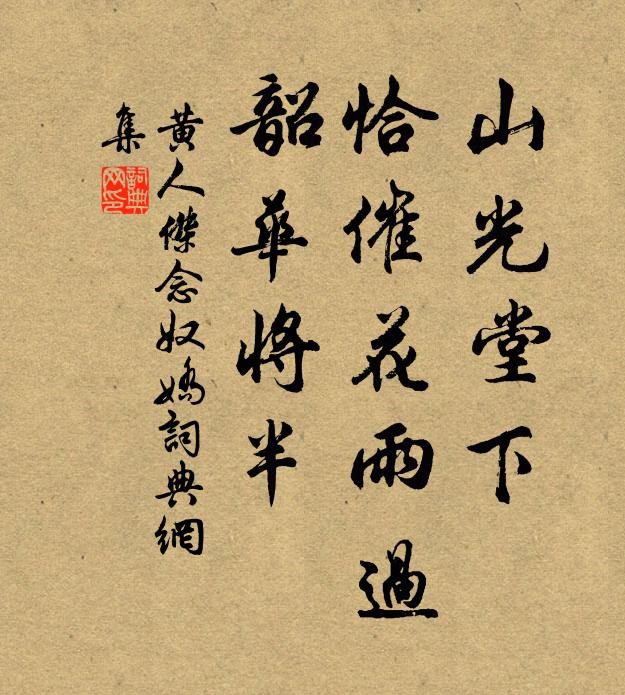 山光堂下
恰催花雨過
韶華將半
黄人傑念奴嬌詞典網
集
詞典
网印